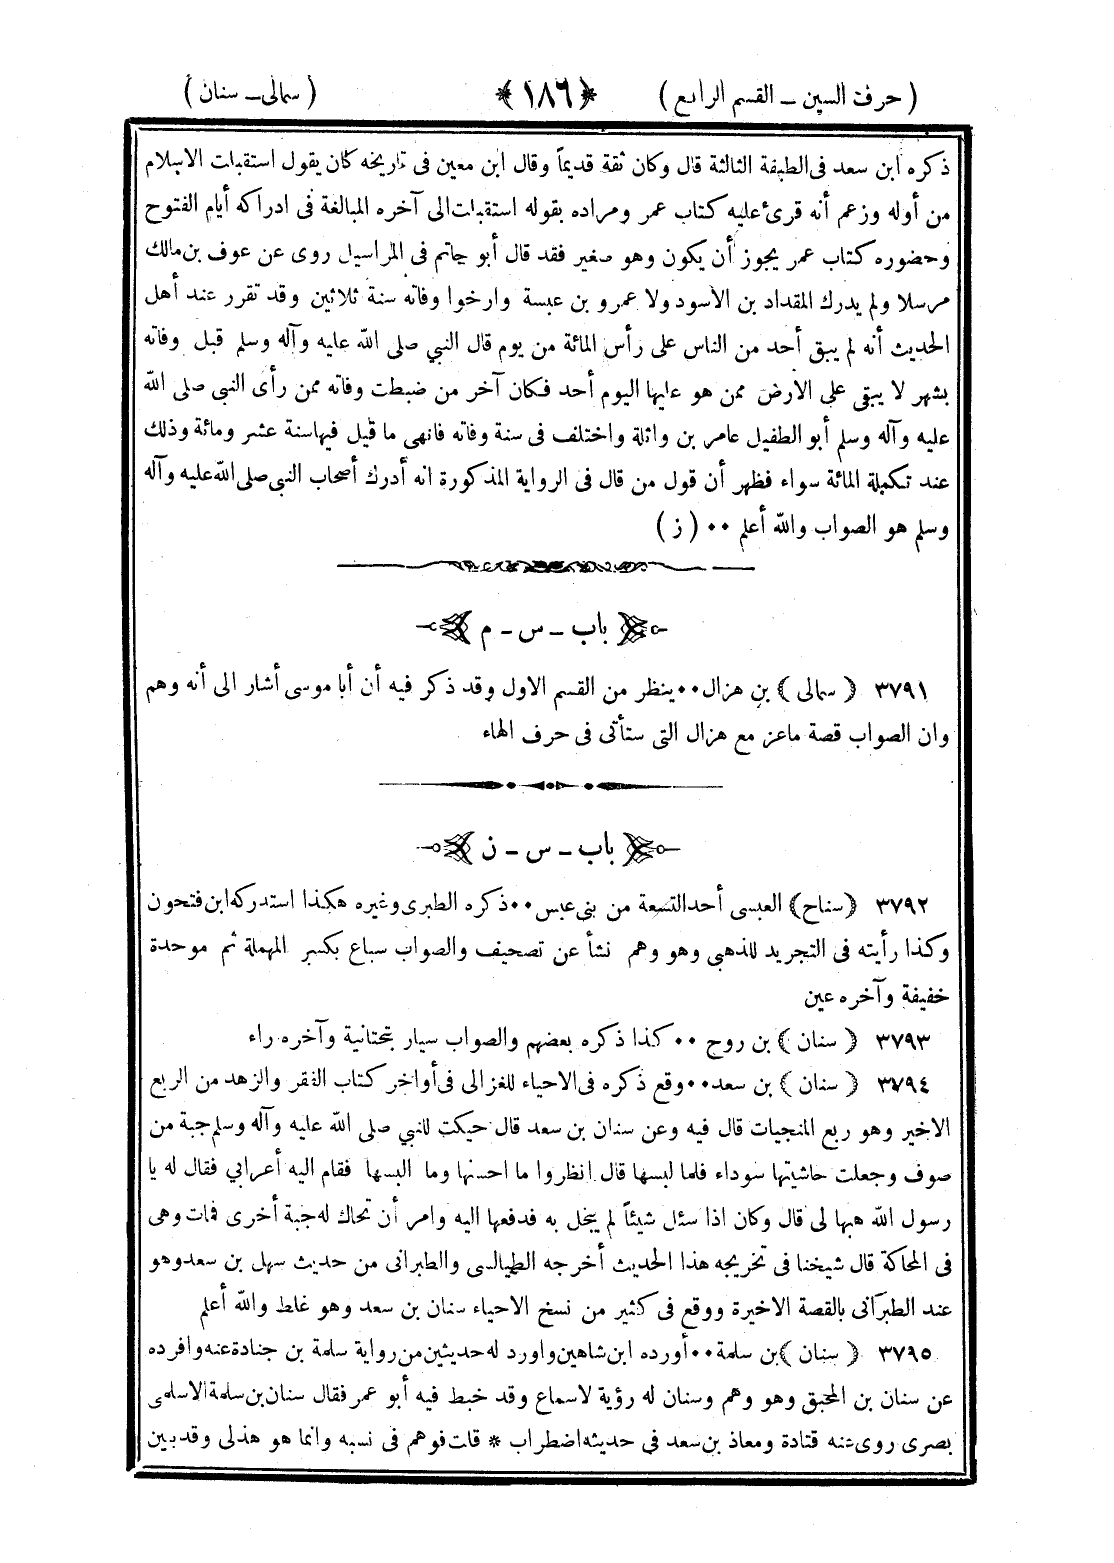 ( حرف السين ــ القسم الرابع ) ﴿١٨٦﴾ ( سمالى ــ سنان )
ذكره ابن سعد فى الطبقة الثالثة قال وكان ثقة قديماً وقال ابن معين فى تاريخه كان يقول استقبلت الاسلام
من أوله وزعم أنه قرئ عليه كتاب عمر ومراده بقوله استقبلت الى آخره المبالغة فى ادراكه أيام الفتوح
وحضوره كتاب عمر يجوز أن يكون وهو صغير فقد قال أبو حاتم فى المراسيل روى عن عوف بن مالك
مرسلا ولم يدرك المقداد بن الأسود ولا عمرو بن عبسة وارخوا وفاته سنة ثلاثين وقد تقرر عند أهل
الحديث أنه لم يبق أحد من الناس على رأس المائة من يوم قال النبي صلى الله عليه وآله وسلم قبل وفاته
بشهر لا يبقى على الارض ممن هو عليها اليوم أحد فكان آخر من ضبطت وفاته ممن رأى النبي صلى الله
عليه وآله وسلم أبو الطفيل عامر بن واثلة واختلف فى سنة وفاته فانهى ما قيل فيها سنة عشر ومائة وذلك
عند تكملة المائة سواء فظهر أن قول من قال فى الرواية المذكورة انه أدرك أصحاب النبي صلى الله عليه وآله
وسلم هو الصواب والله أعلم ٠٠ ( ز )
باب ــ س ــ م
٣٧٩١ ﴿ سمالى ﴾ بن هزال ٠٠ ينظر من القسم الاول وقد ذكر فيه أن أبا موسى أشار الى أنه وهم
وان الصواب قصة ماعز مع هزال التى ستأتى فى حرف الهاء
باب ــ س ــ ن
٣٧٩٢ ﴿سناح﴾ العبسى أحد التسعة من بنى عبس ٠٠ ذكره الطبرى وغيره هكذا استدركه ابن فتحون
وكذا رأيته فى التجريد للذهبى وهو وهم نشأ عن تصحيف والصواب سباع بكسر المهملة ثم موحدة
خفيفة وآخره عين
٣٧٩٣ ﴿ سنان ﴾ بن روح ٠٠ كذا ذكره بعضهم والصواب سيار بتحتانية وآخره راء
٣٧٩٤ ﴿ سنان ﴾ بن سعد ٠٠ وقع ذكره فى الاحياء للغزالى فى أواخر كتاب الفقر والزهد من الربع
الاخير وهو ربع المنجيات قال فيه وعن سنان بن سعد قال حيكت للنبي صلى الله عليه وآله وسلم جبة من
صوف وجعلت حاشيتها سوداء فلما لبسها قال انظروا ما احسنها وما البسها فقام اليه أعرابي فقال له يا
رسول الله هبها لى قال وكان اذا سئل شيئاً لم يبخل به فدفعها اليه وامر أن تحاك له جبة أخرى فمات وهى
فى المحاكة قال شيخنا فى تخريجه هذا الحديث أخرجه الطيالسى والطبرانى من حديث سهل بن سعد وهو
عند الطبرانى بالقصة الاخيرة ووقع فى كثير من نسخ الاحياء سنان بن سعد وهو غلط والله أعلم
٣٧٩٥ ﴿ سنان ﴾ بن سلمة ٠٠ أورده ابن شاهين واورد له حديثين من رواية سلمة بن جنادة عنه وافرده
عن سنان بن المحبق وهو وهم وسنان له رؤية لا سماع وقد خبط فيه أبو عمر فقال سنان بن سلمة الاسلمى
بصرى روى عنه قتادة ومعاذ بن سعد فى حديثه اضطراب * قلت فوهم فى نسبه وانما هو هذلى وقد بين